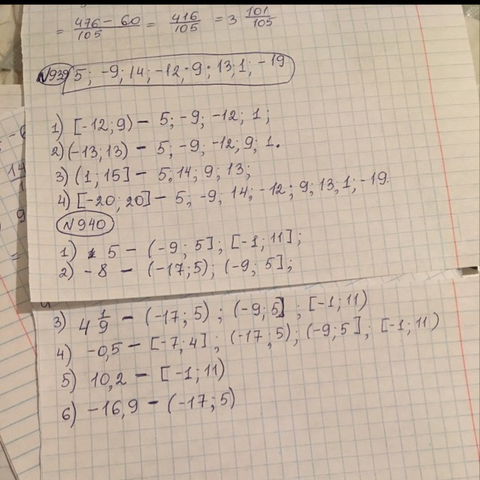 = 476 - 60 / 105 = 416 / 105 = 3 101/105
№939 5; -9; 14; -12; 9; 13; 1; -19
1) [-12; 9) - 5; -9; -12; 1;
2) (-13; 13) - 5; -9; -12; 9; 1.
3) (1; 15] - 5, 14; 9; 13;
4) [-20; 20] - 5, -9, 14, -12; 9, 13, 1, -19.
№940
1) 5 - (-9; 5]; [-1; 11];
2) -8 - (-17; 5); (-9; 5];
3) 4 1/9 - (-17; 5); (-9; 5]; [-1; 11)
4) -0,5 - [-7; 4]; (-17; 5); (-9; 5]; [-1; 11)
5) 10,2 - [-1; 11)
6) -16,9 - (-17; 5)